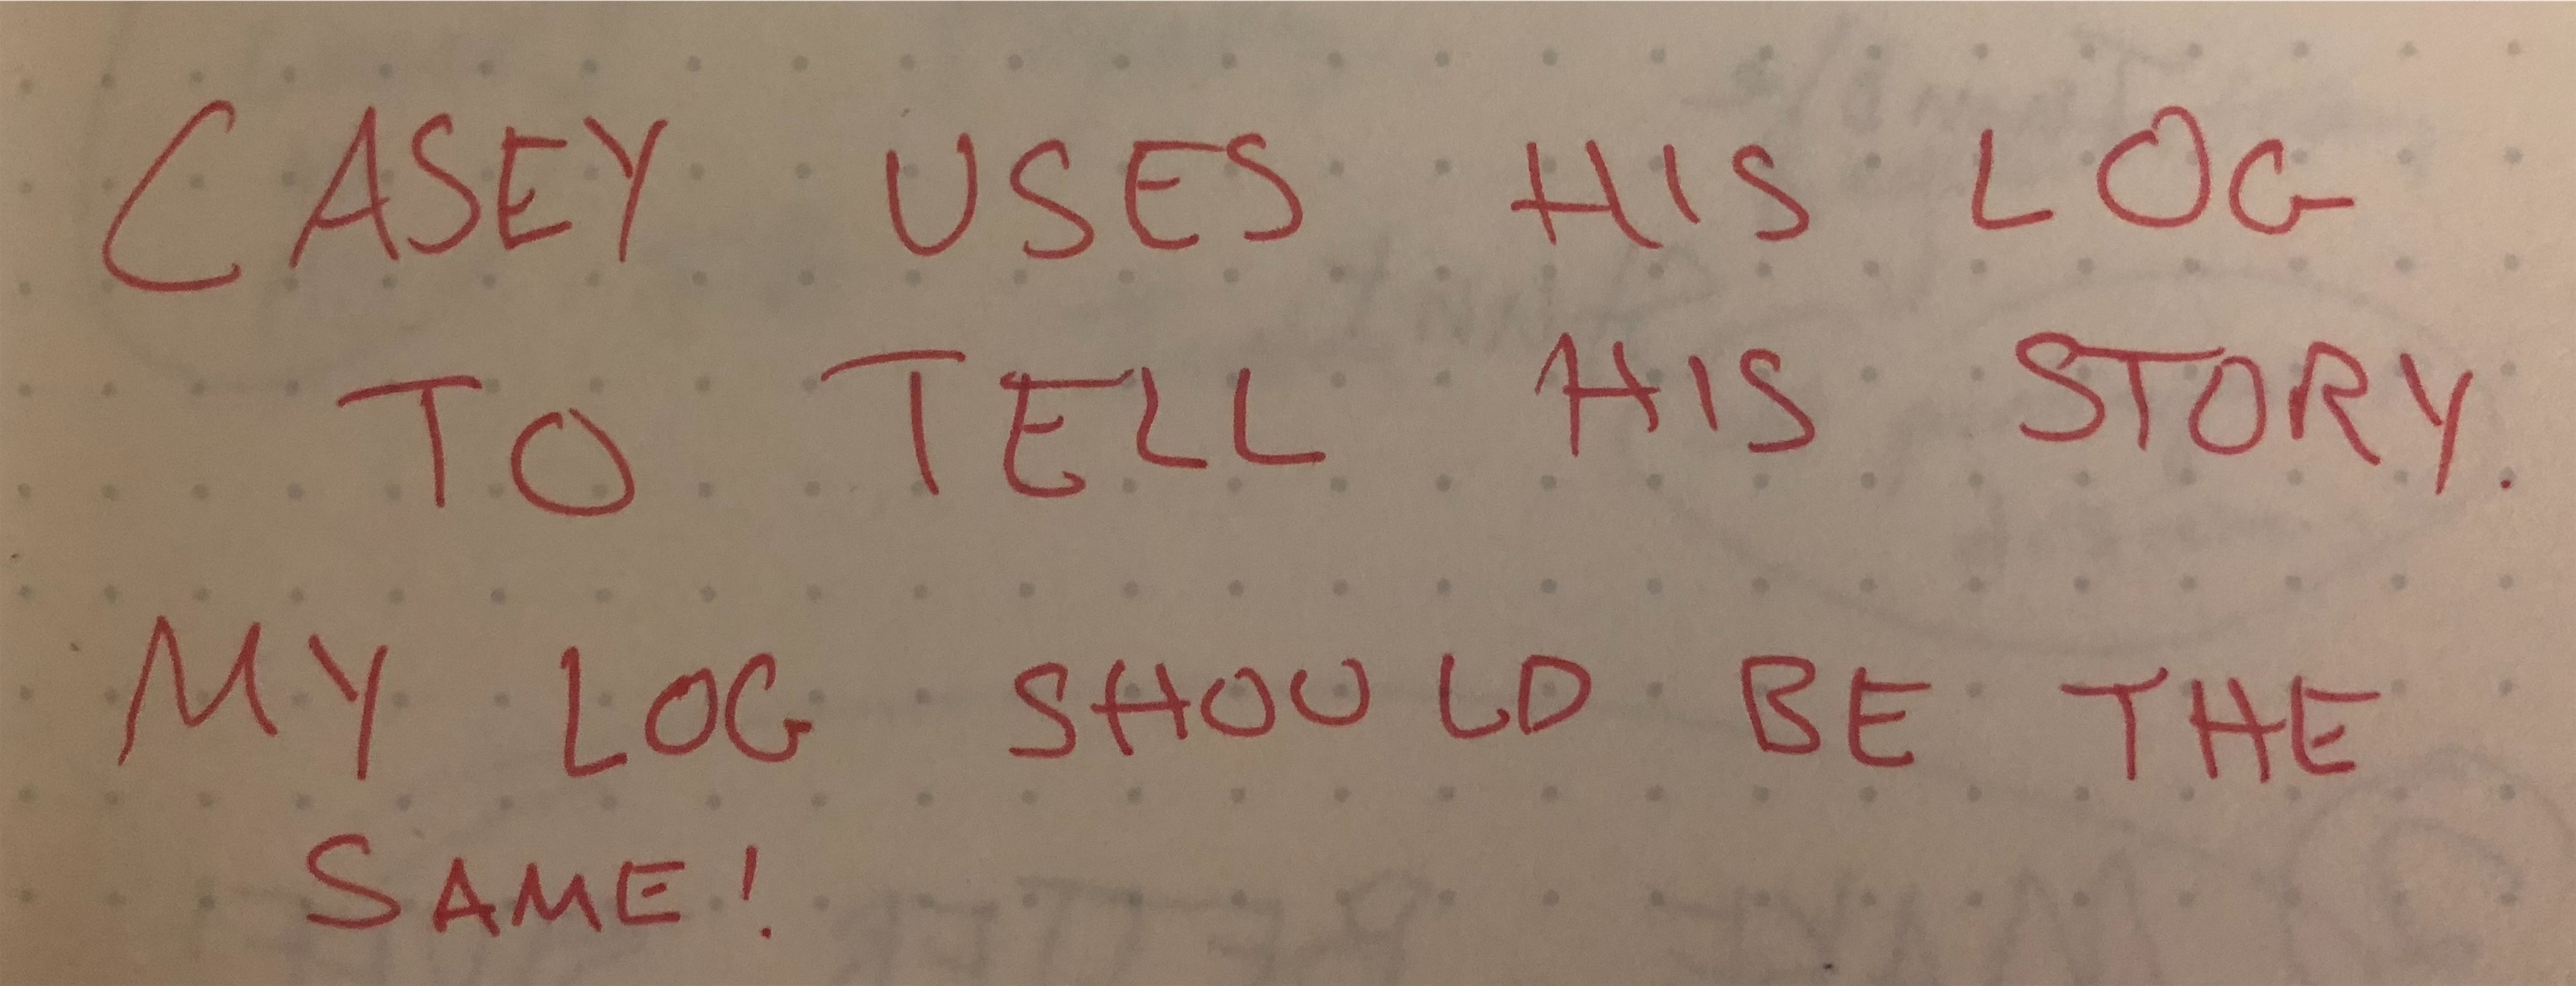 CASEY USES HIS LOG
TO TELL HIS STORY.
MY LOG SHOULD BE THE
SAME!